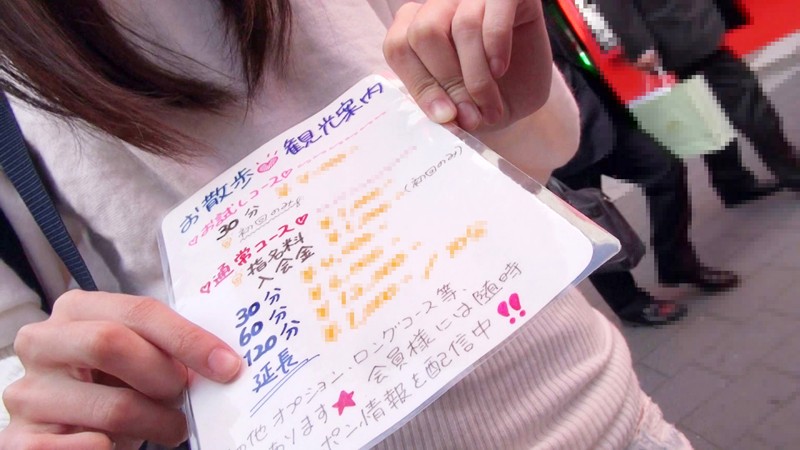 お散歩 観光案内
お試しコース
30分
初回のみ
通常コース
指名料 (初回のみ)
入会金
30分
60分
120分
延長
の他オプション・ロングコース等、
あります 会員様には随時
ポン情報を配信中!!